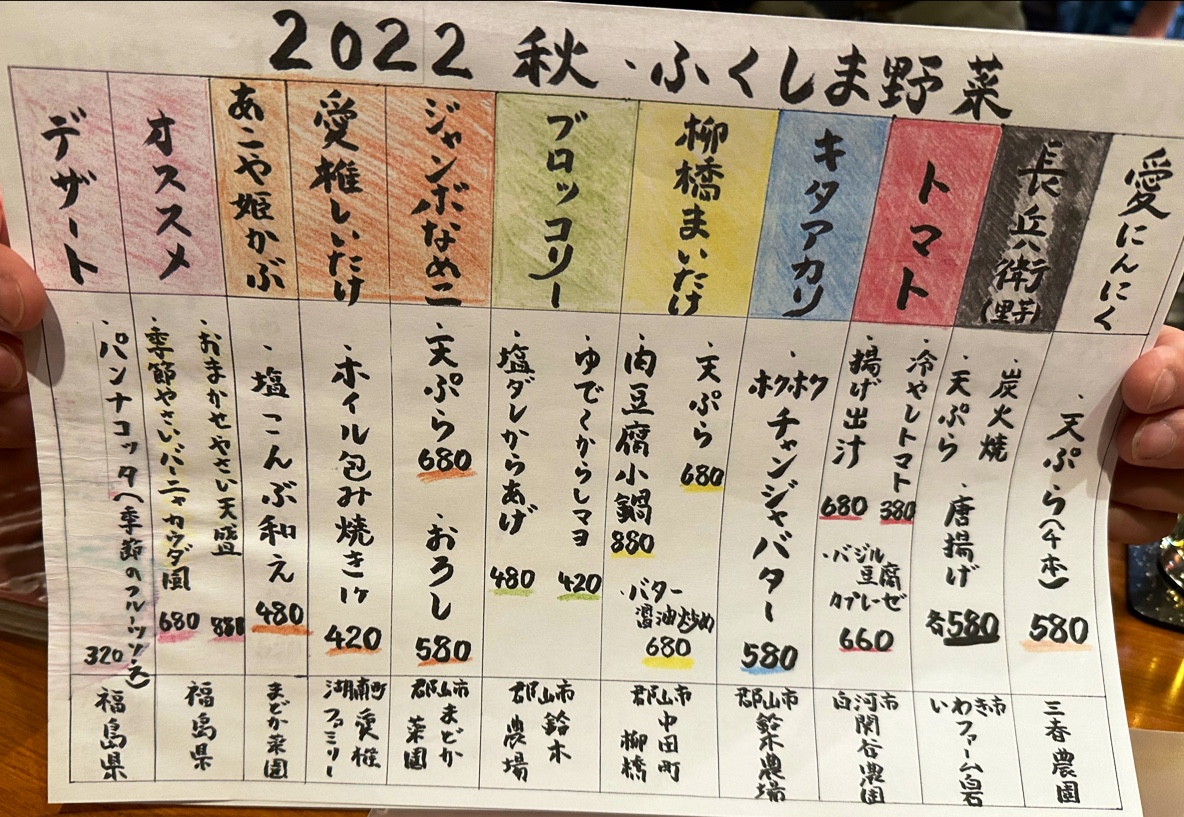 2022 秋・ふくしま野菜
愛にんにく
・天ぷら(4本)
580
三春農園
長兵衛
(里芋)
・炭火焼
・天ぷら
・唐揚げ
各580
いわき市
ファーム白石
トマト
・冷やしトマト
380
・揚げ出汁
680
・バジル
豆腐
カプレーゼ
660
白河市
関谷農園
キタアカリ
・ホクホク
チャンジャバター
580
郡山市
鈴木農場
柳橋まいたけ
・天ぷら
680
・肉豆腐小鍋
880
・バター
醤油炒め
680
郡山市
中田町
柳橋
ブロッコリー
・ゆで〜からしマヨ
420
・塩ダレからあげ
480
郡山市
鈴木
農場
ジャンボなめこ
・天ぷら
680
・おろし
580
郡山市
まどか
菜園
愛椎しいたけ
・ホイル包み焼き
420
湖南町
愛椎
ファミリー
あこや姫かぶ
・塩こんぶ和え
480
まどか菜園
オススメ
・おまかせやさい天盛
880
・季節やさいバーニャカウダ風
680
福島県
デザート
・パンナコッタ(季節のフルーツソース)
320
福島県